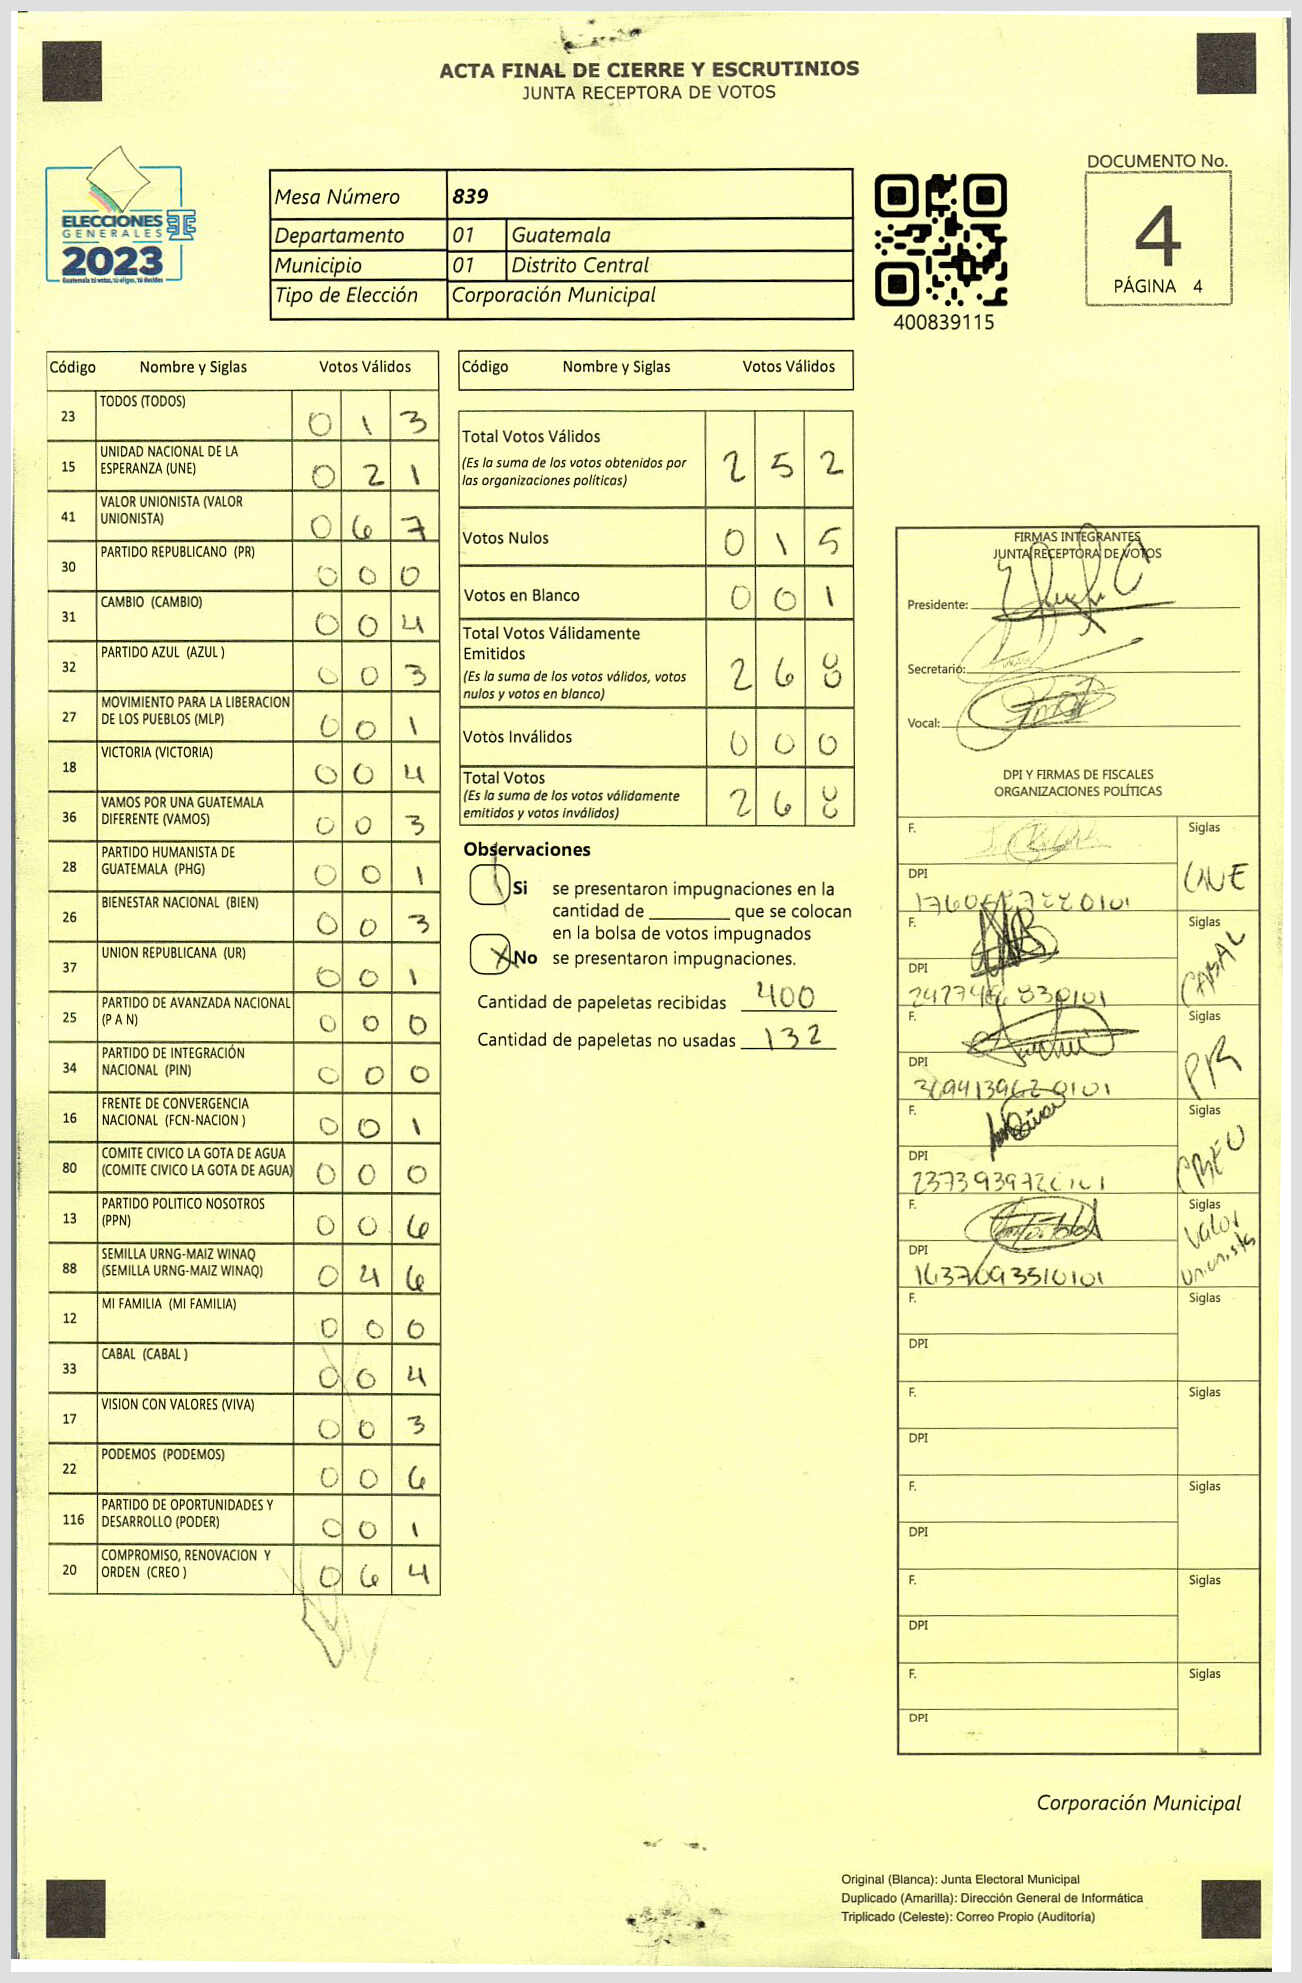 ACTA FINAL DE CIERRE Y ESCRUTINIOS
JUNTA RECEPTORA DE VOTOS
ELECCIONES
GENERALES
2023
Guatemala tú votas, tú eliges, tú decides
Mesa Número 839
Departamento 01 Guatemala
Municipio 01 Distrito Central
Tipo de Elección Corporación Municipal
400839115
DOCUMENTO No.
4
PÁGINA 4
Código Nombre y Siglas Votos Válidos
23 TODOS (TODOS) 0 1 3
15 UNIDAD NACIONAL DE LA
ESPERANZA (UNE) 0 2 1
41 VALOR UNIONISTA (VALOR
UNIONISTA) 0 6 7
30 PARTIDO REPUBLICANO (PR) 0 0 0
31 CAMBIO (CAMBIO) 0 0 4
32 PARTIDO AZUL (AZUL ) 0 0 3
27 MOVIMIENTO PARA LA LIBERACION
DE LOS PUEBLOS (MLP) 0 0 1
18 VICTORIA (VICTORIA) 0 0 4
36 VAMOS POR UNA GUATEMALA
DIFERENTE (VAMOS) 0 0 3
28 PARTIDO HUMANISTA DE
GUATEMALA (PHG) 0 0 1
26 BIENESTAR NACIONAL (BIEN) 0 0 3
37 UNION REPUBLICANA (UR) 0 0 1
25 PARTIDO DE AVANZADA NACIONAL
(P A N) 0 0 0
34 PARTIDO DE INTEGRACIÓN
NACIONAL (PIN) 0 0 0
16 FRENTE DE CONVERGENCIA
NACIONAL (FCN-NACION ) 0 0 1
80 COMITE CIVICO LA GOTA DE AGUA
(COMITE CIVICO LA GOTA DE AGUA) 0 0 0
13 PARTIDO POLITICO NOSOTROS
(PPN) 0 0 6
88 SEMILLA URNG-MAIZ WINAQ
(SEMILLA URNG-MAIZ WINAQ) 0 4 6
12 MI FAMILIA (MI FAMILIA) 0 0 0
33 CABAL (CABAL ) 0 0 4
17 VISION CON VALORES (VIVA) 0 0 3
22 PODEMOS (PODEMOS) 0 0 6
116 PARTIDO DE OPORTUNIDADES Y
DESARROLLO (PODER) 0 0 1
20 COMPROMISO, RENOVACION Y
ORDEN (CREO ) 0 6 4
Código Nombre y Siglas Votos Válidos
Total Votos Válidos 2 5 2
(Es la suma de los votos obtenidos por
las organizaciones políticas)
Votos Nulos 0 1 5
Votos en Blanco 0 0 1
Total Votos Válidamente
Emitidos 2 6 8
(Es la suma de los votos válidos, votos
nulos y votos en blanco)
Votos Inválidos 0 0 0
Total Votos 2 6 8
(Es la suma de los votos válidamente
emitidos y votos inválidos)
Observaciones
Si se presentaron impugnaciones en la
cantidad de ________ que se colocan
en la bolsa de votos impugnados
X No se presentaron impugnaciones.
Cantidad de papeletas recibidas 400
Cantidad de papeletas no usadas 132
FIRMAS INTEGRANTES
JUNTA RECEPTORA DE VOTOS
Presidente:
Secretario:
Vocal:
DPI Y FIRMAS DE FISCALES
ORGANIZACIONES POLÍTICAS
F. Siglas
DPI UNE
F. Siglas
DPI CABAL
F. Siglas
DPI PR
F. Siglas
DPI CREO
F. Siglas
DPI Valor
1637093510101 Unionista
F. Siglas
DPI
F. Siglas
DPI
F. Siglas
DPI
F. Siglas
DPI
F. Siglas
DPI
Corporación Municipal
Original (Blanca): Junta Electoral Municipal
Duplicado (Amarilla): Dirección General de Informática
Triplicado (Celeste): Correo Propio (Auditoría)